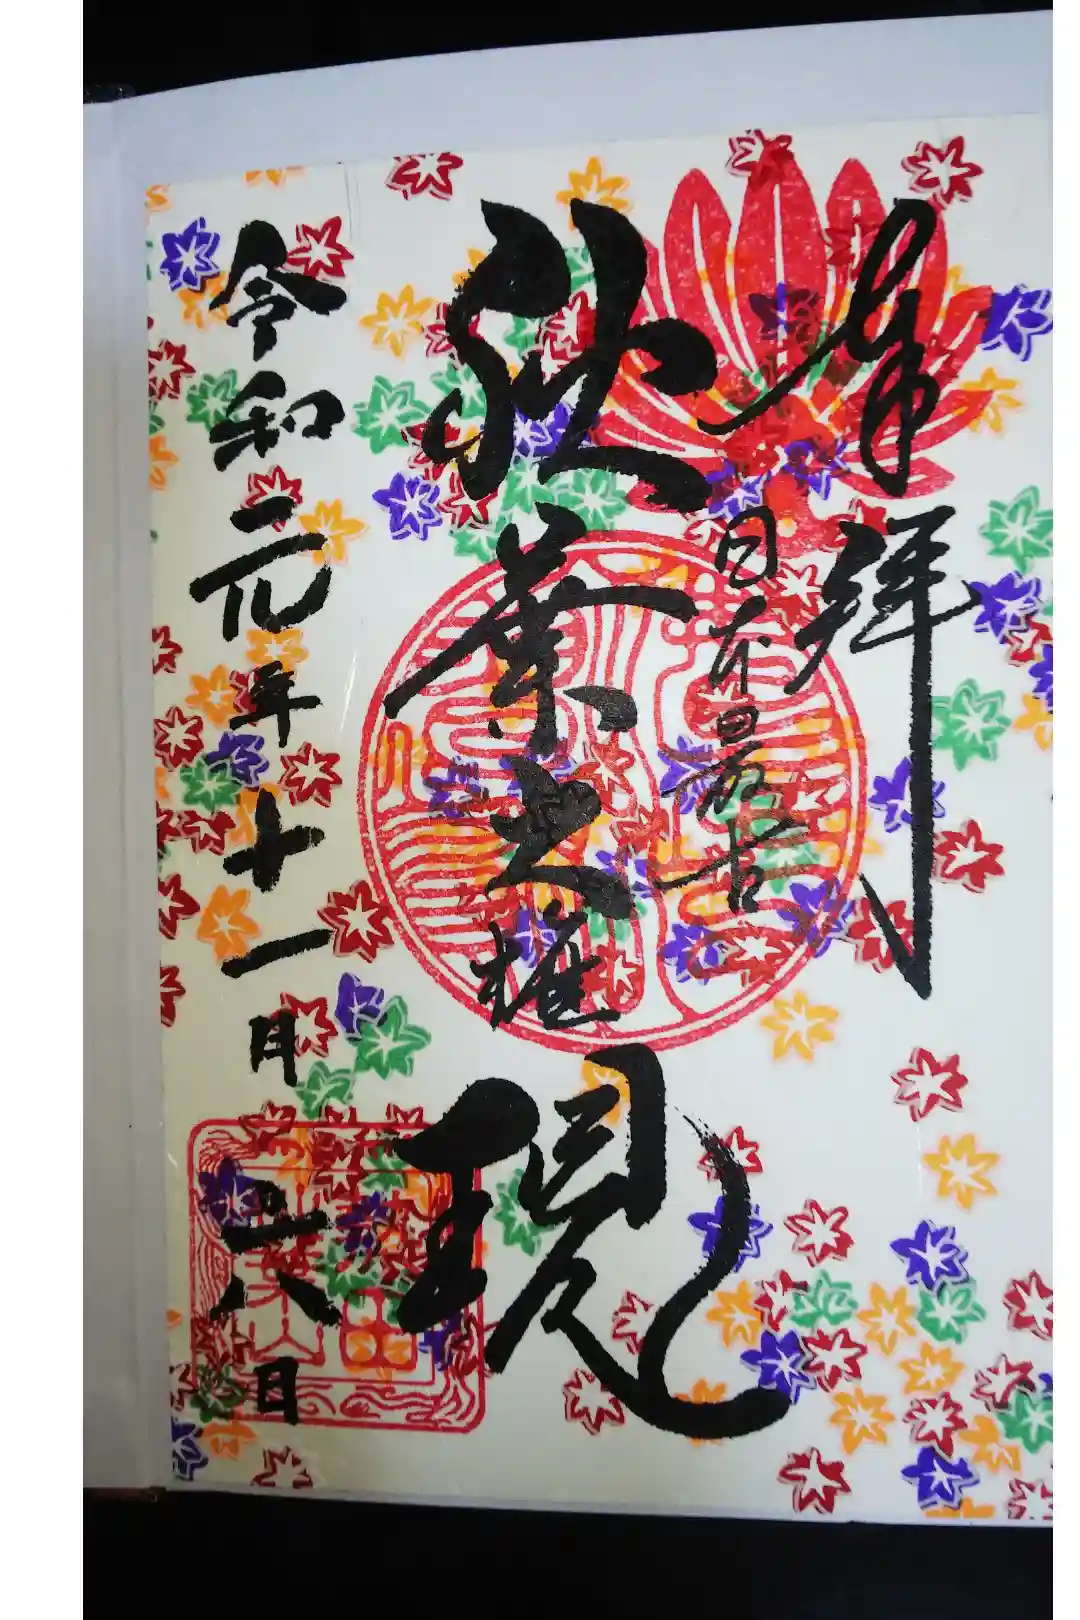 奉拝
日本最古
秋葉大権現
令和元年十一月二八日